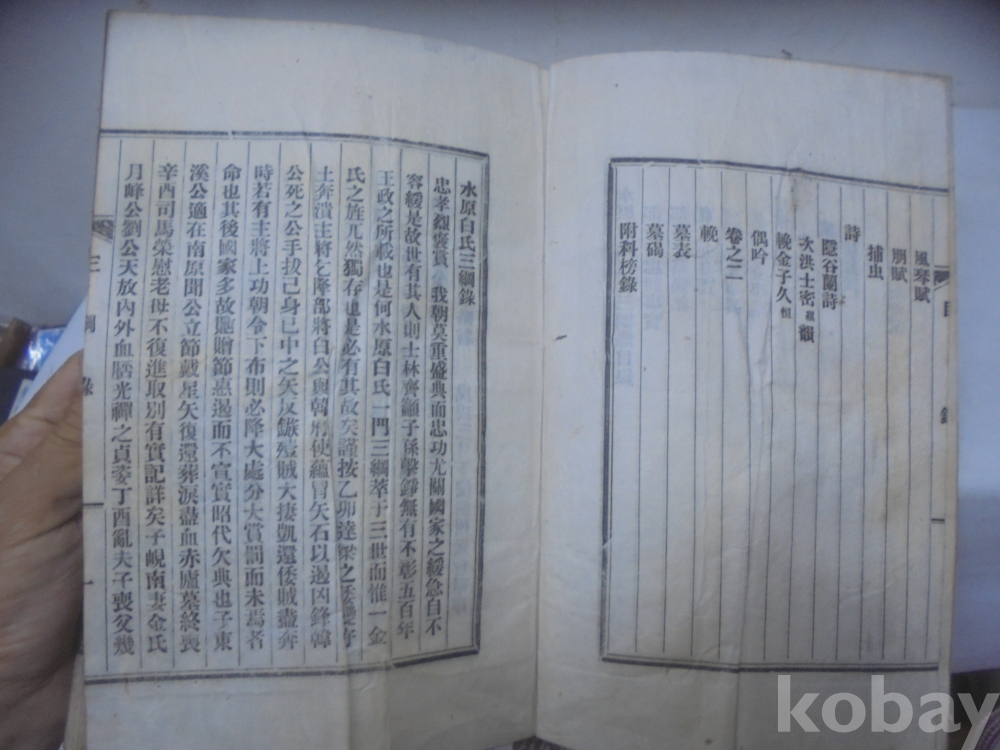 目錄
風琴賦
朋賦
捕虫
詩
隱谷蘭詩
次洪士密韻
輓金子久恒
偶吟
卷之二
輓
墓表
墓碣
附科榜錄
水原白氏三綱錄
忠孝烈褒賞 我朝莫重盛典而忠功尤關國家之緩急自不
容緩是故世有其人則士林齊籲子孫擊錚無有不彰五百年
王政之所載也是何水原白氏一門三綱萃于三世而惟一金
氏之旌兀然獨存也是必有其故矣謹按乙卯達梁之倭變守
土奔潰主將乞降部將白公與韓將使蘊冒矢石以遏凶鋒韓
公死之公手拔己身已中之矢反鏃殪賊大捷凱還倭賊盡奔
時若有主將上功朝令下布則必降大處分大賞罰而未焉者
命也其後國家多故貤贈節惠過而不宣實昭代欠典也子東
溪公適在南原聞公立節戴星矢復還葬淚盡血赤廬墓終喪
辛酉司馬榮慰老母不復進取別有實記詳矣子峴南妻金氏
月峰公劉公天放內外血膺光禪之貞姿丁酉亂夫子喪父幾
三綱錄
一
kobay